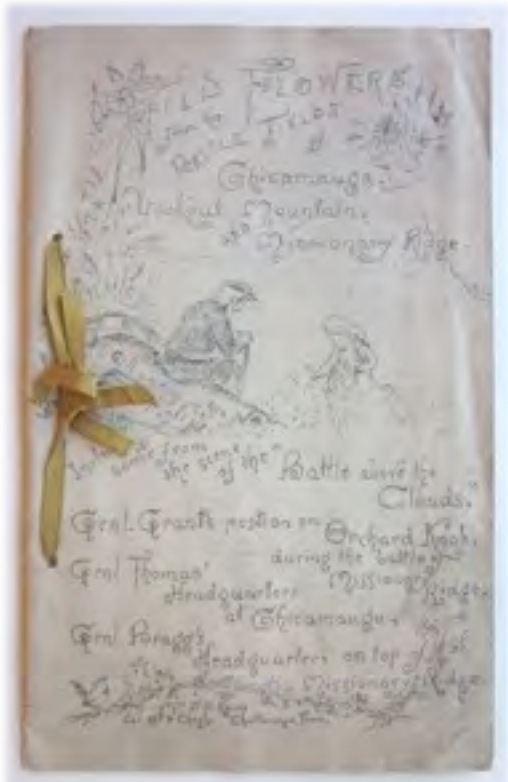 WILD FLOWERS
from the
BATTLE FIELDS
of
Chicamauga.
Lookout Mountain.
AND Missionary Ridge.
some from
the scene
of the "Battle above the
Clouds."
Genl. Grant's position on
Orchard Knob.
during the battle of
Missionary
Ridge.
Genl Thomas'
Headquarters
at Chicamauga.
Genl Bragg's
Headquarters on top of
Missionary Ridge.